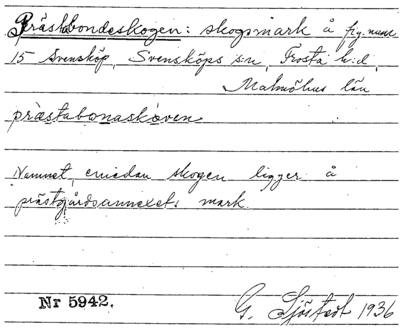 Prästabondeskogen: skogsmark å fig. numr
15 Svensköp, Svensköps sn, Frosta h:d,
Malmöhus län
præstabonaskoven
Namnet, emedan skogen ligger å
prästgårdsannexets mark.
Nr 5942.
G. Sjöstedt 1936